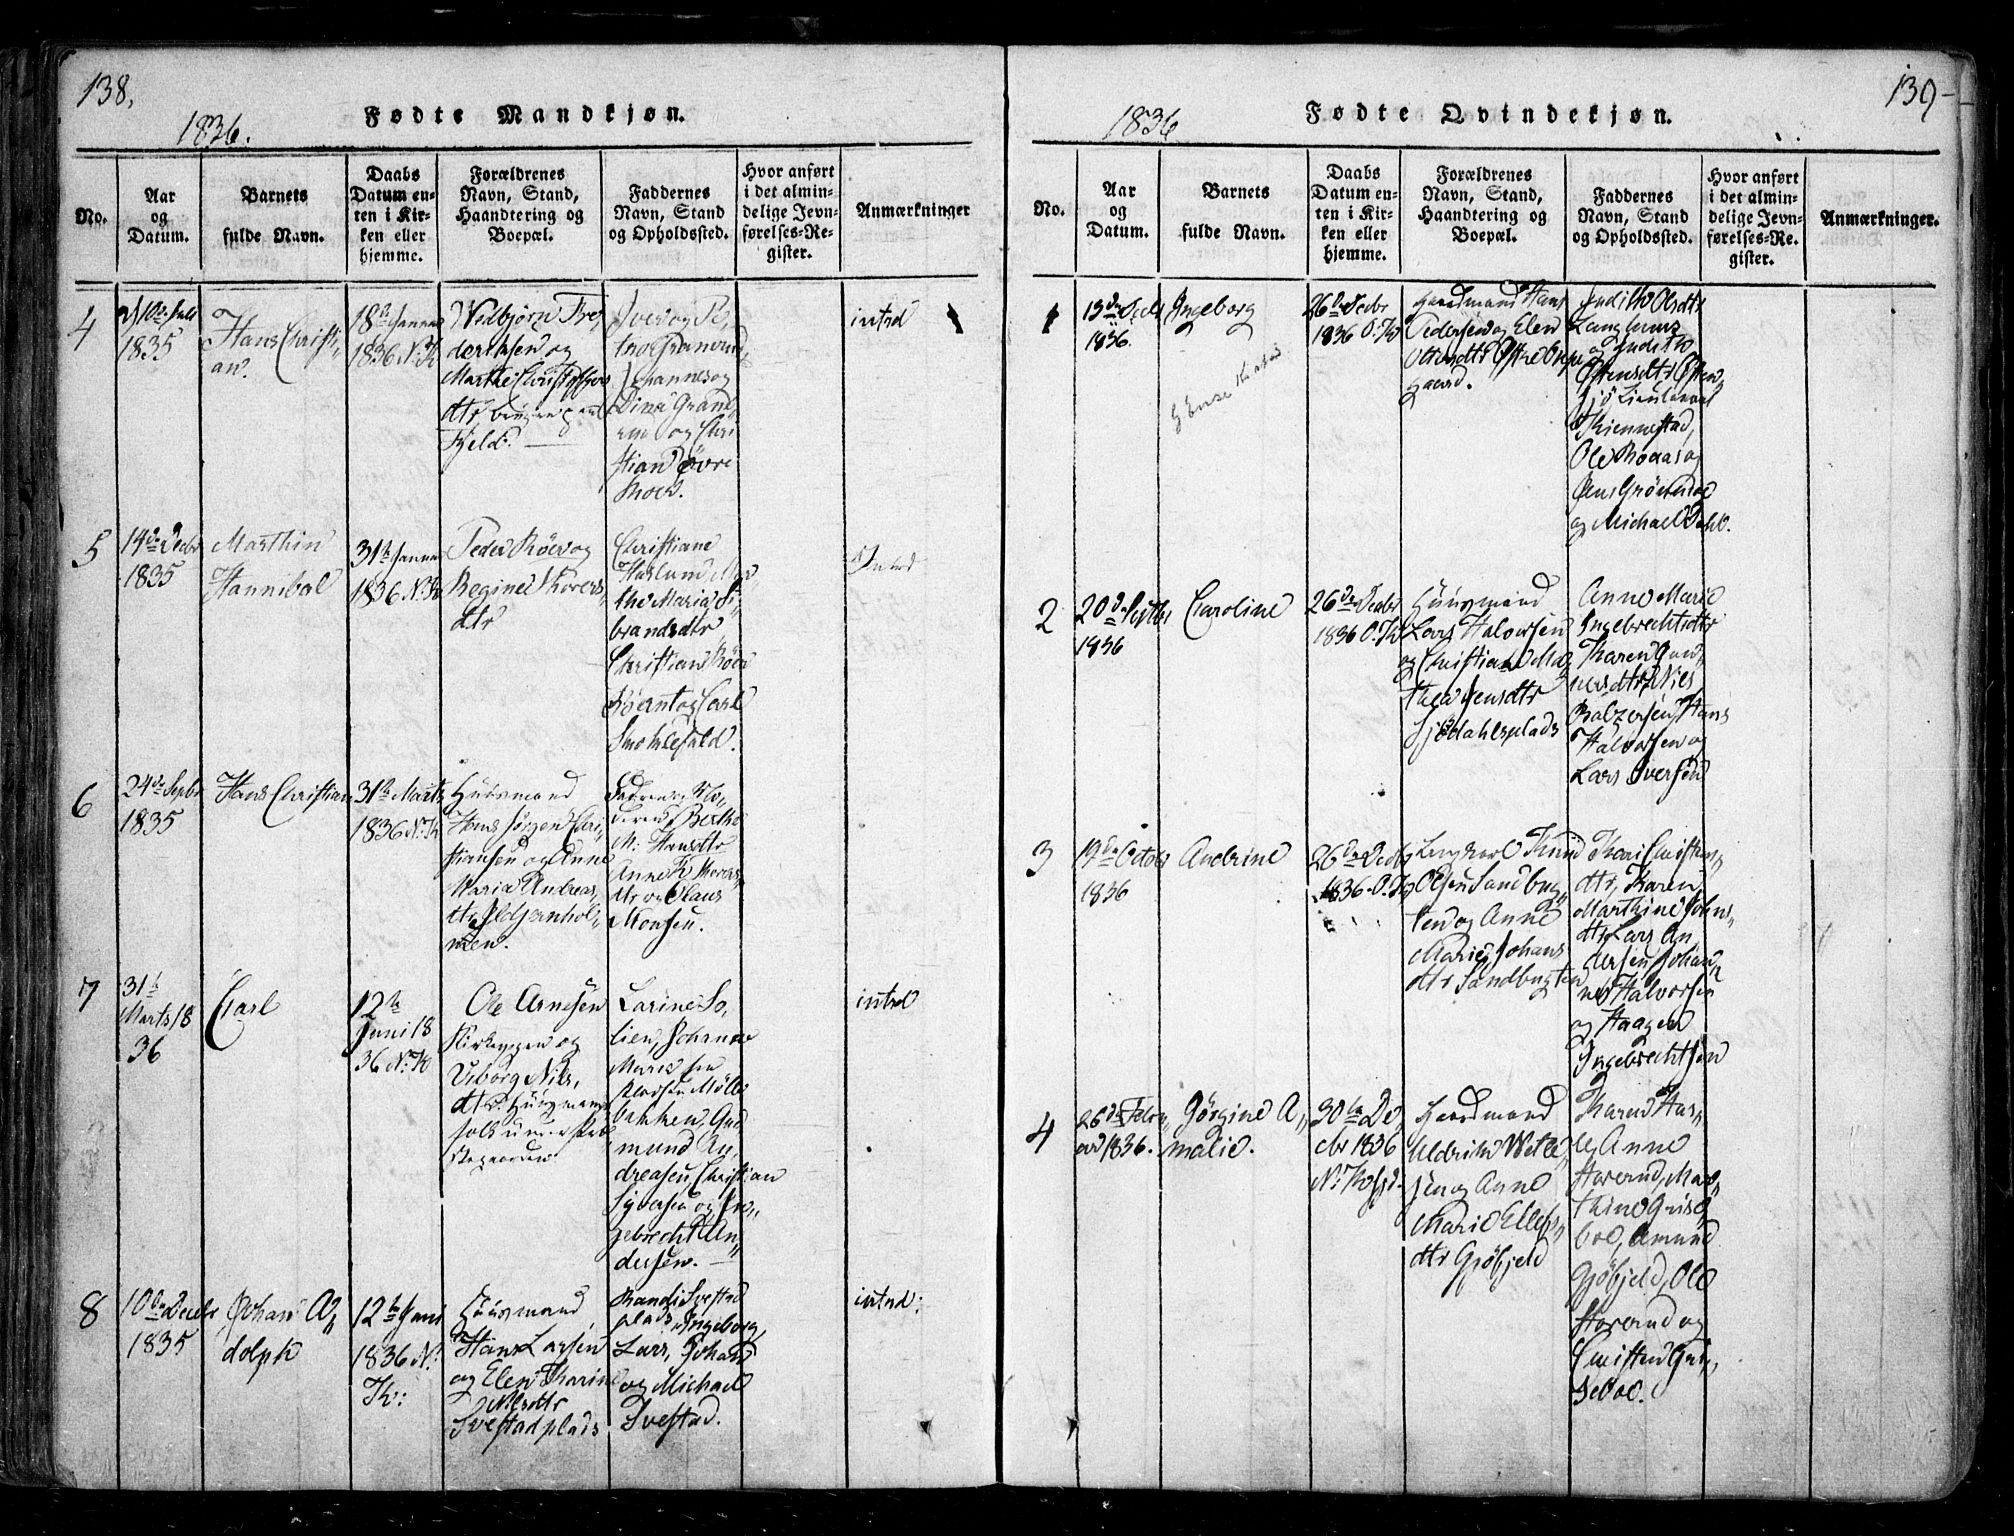 138.
1836.
Fødte Mandkjøn.
No.
Aar
og
Datum.
Barnets
fulde Navn.
Daabs
Datum en-
ten i Kir-
ken eller
hjemme.
Forældrenes
Navn, Stand,
Haandtering og
Boepæl.
Faddernes
Navn, Stand
og Opholdssted.
Hvor anført
i det almin-
delige Jevn-
førelses-Re-
gister.
Anmærkninger
4
10de Juli
1835
Hans Christi-
an.
18de Januar
1836 N. K
Wedbjørn Fre,
dericksen og
Marthe Christophers
dtr
Fjeld.
Iver og
Johannes og
Dina Gran,
rud og Chri
stian øvre
intrd
5
14de Decbr
1835
Marthin
Hannibal
31te Januar
1836 N. K
Peder Röer og
Regine Thorers,
dtr
Christiane
Haslund Mar,
the Maria Si,
brandsdtr
Christian Röer
og Carl
6
24de Septbr
1835
Hans Christian
31te Marts
1836 N. K
Huusmand
Hans Jörgen Chri,
stiansen og Anne
Maria Andreas,
dtr Ildjernhol,
men.
Faderen, Mo,
deren, Berthe
M. Hansdtr
Anne K Thorers,
dtr og Claus
Monsen.
7
31te
Marts 18
36
Carl
12te
Juni 18
36 N. K
Ole Arnesen
og
Viborg Nils,
dtr Huusmands
folk under
Larine So,
lien, Johanne
Marie
Mölle
bakken, Gud
mund An,
dreasen, Christian
Syversen og In,
gebrecht An,
dersen.
intrd
8
10de Decbr
1835
Johan A,
dolph
12te Juni
1836 N.
K:
Huusmand
Hans Larsen
og Elen Karine
Nilsdtr
Svestadplads
Randi Svestad
plads, Ingeborg,
Lars, Johan
og Michael
Svestad.
intrd:
139
1836
Fødte Qvindekjøn.
No.
Aar
og
Datum.
Barnets
fulde Navn.
Daabs
Datum en-
ten i Kir-
ken eller
hjemme.
Forældrenes
Navn, Stand,
Haandtering og
Boepæl.
Faddernes
Navn, Stand
og Opholdssted.
Hvor anført
i det almin-
delige Jevn-
førelses-Re.
gister.
Anmærkninger.
1
13de Decbr
1836.
Ingeborg
26de Decbr
1836 O. K
Gaardmand Hans
Pedersen og Elen
Østre
gaard.
Judith Olsdtr
og Judith
Østensdtr Østen,
sjö Lieutenant
Ole Roaas og
Jens
og Michael
2
20de Septbr
1836
Caroline
26de Decbr
1836 O. K
Huusmand
Lars Halvorsen
og Christiane Ma,
thea Jensdtr
Sjödahlsplads
Anne Marie
Ingebrechtsdtr
Karen Gun,
nersdtr, Niels
Balzersen, Hans
Halvorsen og
Lars Iversen
3
19de Octobr
1836
Andrine
26de Decbr
1836. O. K
Ungkarl Knud
Olsen Sandbug,
ten og Anne
Marie Johans
dtr Sandbugten
Kari Christians,
dtr, Karen
Marthine Johns,
dtr, Lars An
dersen, Johan,
nes Halvorsen
og Haagen
Ingebrechtsen
4
26de Febru,
ar 1836.
Jörgine A,
malie.
30te De,
cbr 1836
N. K
Gaardmand
Uldrik Wetle,
sen og Anne
Marie Ellefs,
dtr Gjöfjeld
Karen Has,
le, Anne
Storerud, Mar,
thine Grise,
boe, Amund
Gjöfjeld, Ole
Storerud og
Christen Gri,
seboe.